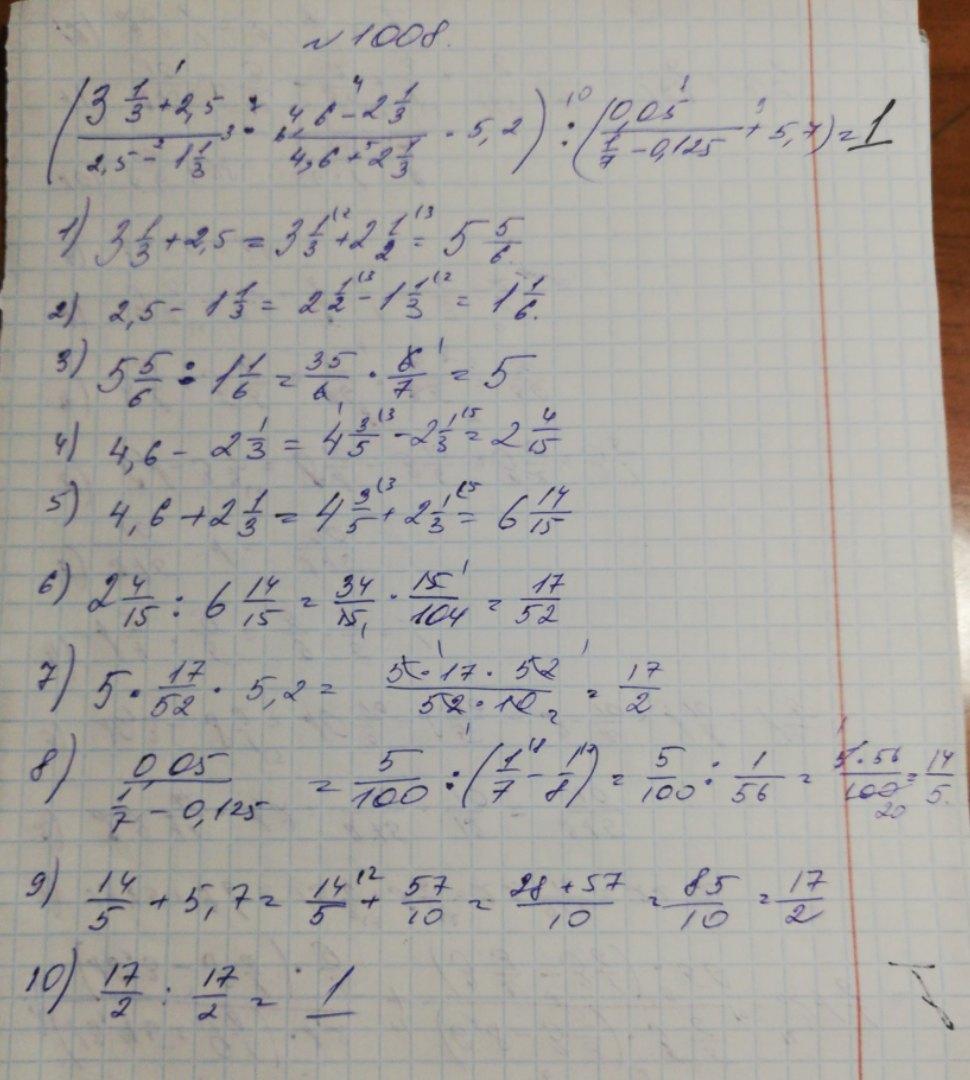 №1008.
(3 1/3 + 2,5 / 2,5 - 1 1/3 · 4,6 - 2 1/3 / 4,6 + 2 1/3 · 5,2) : (0,05 / 1/7 - 0,125 + 5,7) = 1
1) 3 1/3 + 2,5 = 3 1/3 + 2 1/2 = 5 5/6
2) 2,5 - 1 1/3 = 2 1/2 - 1 1/3 = 1 1/6.
3) 5 5/6 : 1 1/6 = 35/6 · 6/7 = 5
4) 4,6 - 2 1/3 = 4 3/5 - 2 1/3 = 2 4/15
5) 4,6 + 2 1/3 = 4 3/5 + 2 1/3 = 6 14/15
6) 2 4/15 : 6 14/15 = 34/15 · 15/104 = 17/52
7) 5 · 17/52 · 5,2 = 5 · 17 · 52 / 52 · 10 = 17/2
8) 0,05 / 1/7 - 0,125 = 5/100 : (1/7 - 1/8) = 5/100 : 1/56 = 5 · 56 / 100 = 14/5.
9) 14/5 + 5,7 = 14/5 + 57/10 = 28 + 57 / 10 = 85/10 = 17/2
10) 17/2 : 17/2 = 1